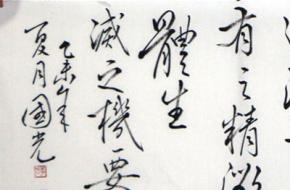 有之精微
體生
滅之機要
乙未年
夏月國光